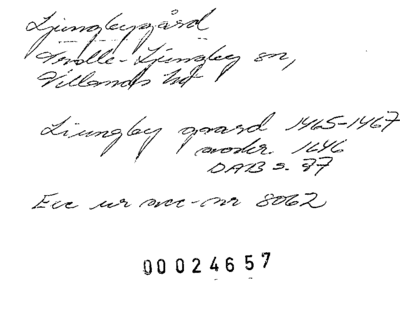 Ljungbygård
Trolle-Ljungby sn,
Villands hd
Liungby gaard 1465-1467
moder. 1646
DAB s. 97
Exc ur acc-nr 8062
00024657